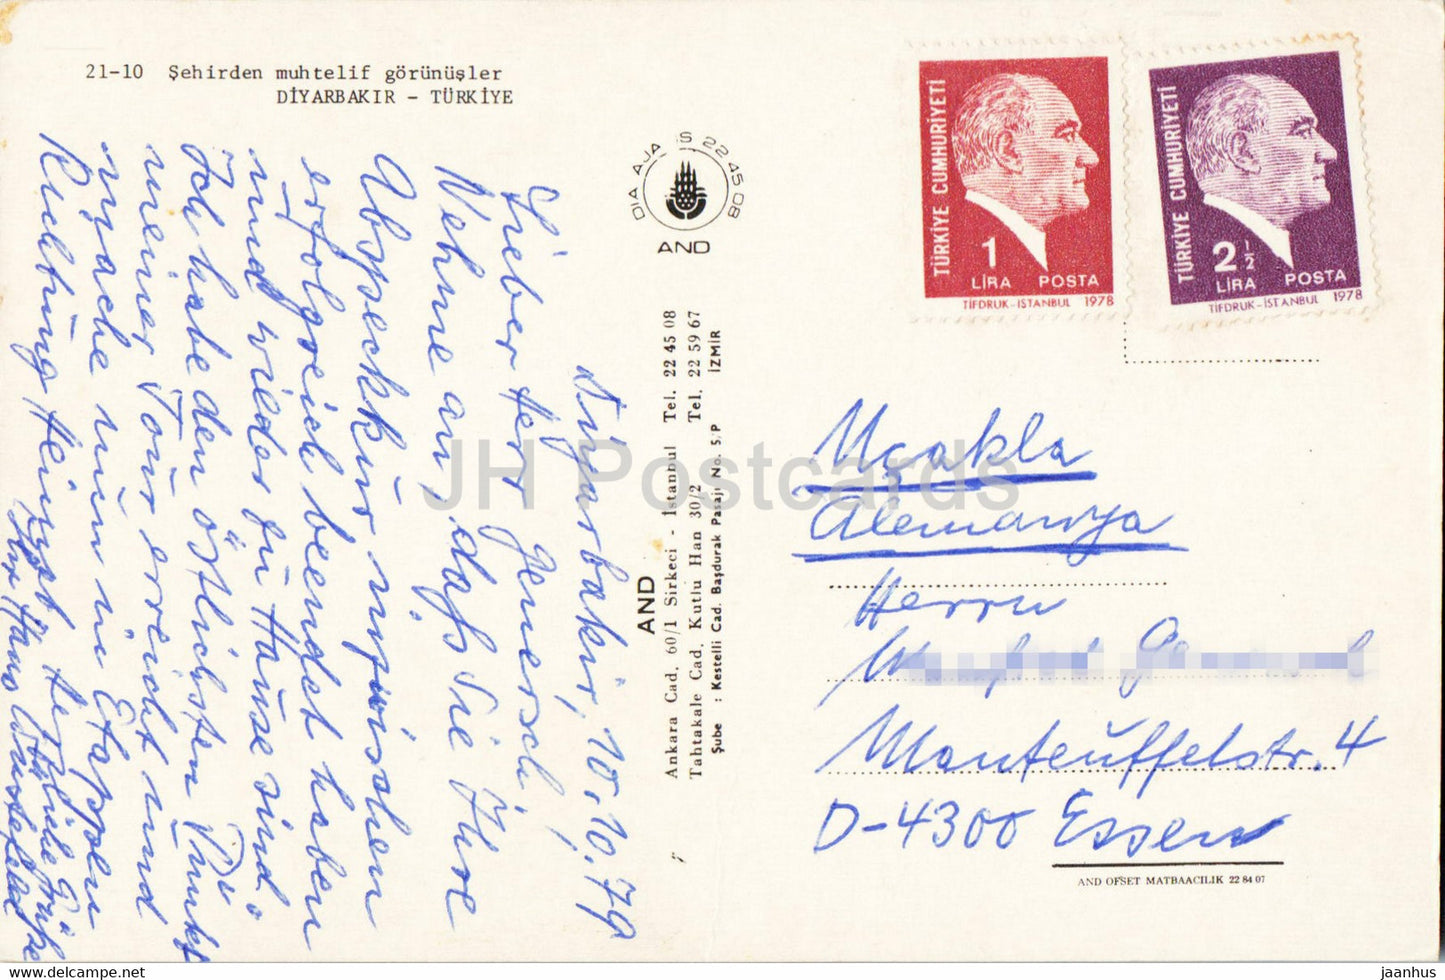 21-10 Şehirden muhtelif görünüşler
DİYARBAKIR - TÜRKİYE
DIA AJANS 22 45 08
AND
Diyarbakir, 10.10.79
Lieber Herr Jenersch!
Nehme an, daß Sie Ihre
Abspeckkur inzwischen
erfolgreich beendet haben
und wieder zu Hause sind.
Ich habe den östlichsten Punkt
meiner Tour erreicht und
mache nun in Etappen
Richtung Heimat. Herzliche Grüße
Ihr Hans
AND
Ankara Cad. 60/1 Sirkeci - İstanbul Tel. 22 45 08
Tahtakale Cad. Kutlu Han 30/2 Tel. 22 59 67
Şube : Kestelli Cad. Başdurak Pasajı No. 5/P İZMİR
TÜRKİYE CUMHURİYETİ
1
LİRA POSTA
TİFDRUK-İSTANBUL 1978
TÜRKİYE CUMHURİYETİ
2 1/2
LİRA POSTA
TİFDRUK-İSTANBUL 1978
Uçakla
Alemanya
Herrn
Manteuffelstr. 4
D-4300 Essen
AND OFSET MATBAACILIK 22 84 07
JH Postcards
www.delcampe.net
jaanhus